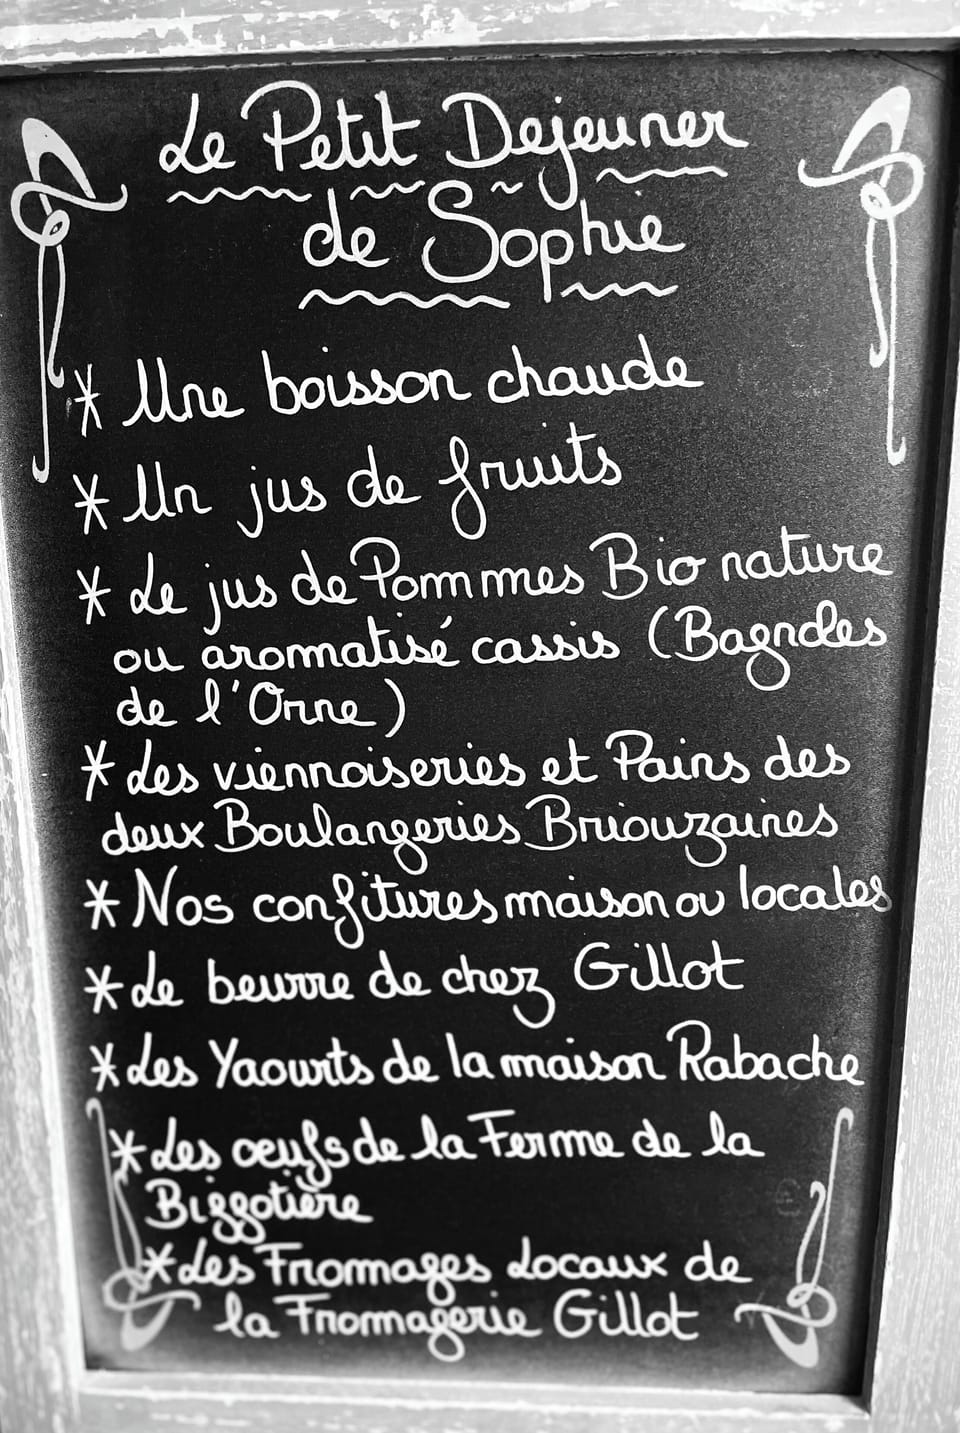 Le Petit Dejeuner
de Sophie
* Une boisson chaude
* Un jus de fruits
* Le jus de Pommes Bio nature
ou aromatisé cassis (Bagnoles
de l'Orne)
* Les viennoiseries et Pains des
deux Boulangeries Briouzaines
* Nos confitures maison ou locales
* Le beurre de chez Gillot
* Les Yaourts de la maison Rabache
* Les œufs de la Ferme de la
Biggotière
* Les Fromages Locaux de
la Fromagerie Gillot